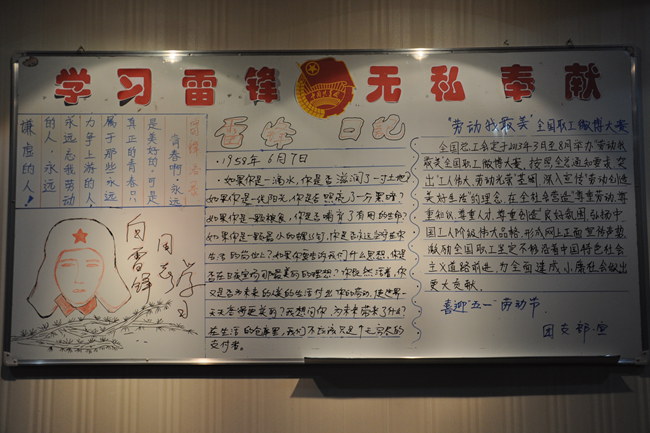 学习雷锋 无私奉献
雷锋名言
青春啊,永远
是美好的,可是
真正的青春只
属于那些永远
力争上游的人
永远忘我劳动
的人,永远
谦虚的人!
向雷锋
同志
学习
雷锋日记
·1958年6月7日
·如果你是一滴水,你是否滋润了一寸土地?
如果你是一线阳光,你是否照亮了一分黑暗?
如果你是一颗粮食,你是否哺育了有用的生命?
如果你是一颗最小的螺丝钉,你是否永远坚守在你
生活的岗位上?如果你要告诉我们什么思想,你是
否在日夜宣扬那最美丽的理想?你既然活着,你
又是否为未来的人类的生活付出你的劳动,使世界一
天天变得更美丽?我想问你,为未来带来了什么?
在生活的仓库里,我们不应该只是个无穷尽的
支付者。
"劳动我最美"全国职工微博大赛
全国总工会定于2013年3月至8月举办"劳动我
最美"全国职工微博大赛,
出"工人伟大,劳动光荣"主题,深入宣传"劳动创造
美好生活"的理念,在全社会营造"尊重劳动、尊
重知识、尊重人才、尊重创造"良好氛围,弘扬中
国工人阶级伟大品格,形成网上正面宣传声势,
激励全国职工坚定不移沿着中国特色社会
主义道路前进,为全面建成小康社会做出
更大贡献。
喜迎"五一"劳动节
团支部宣